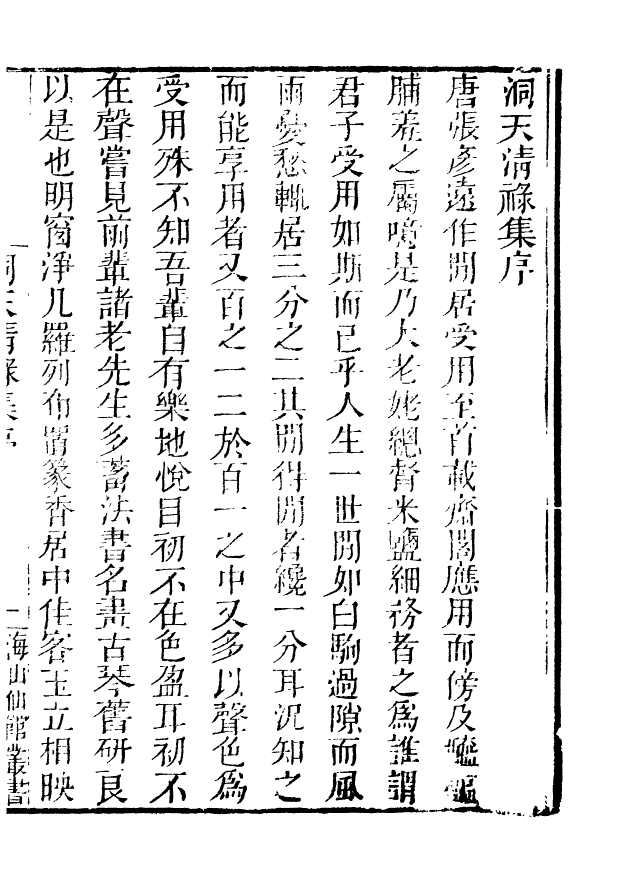 洞天清祿集序
唐張彥遠作閒居受用至首載齋閣應用而傍及醯醢
脯羞之屬噫是乃大老姥總督米鹽細務者之爲誰謂
君子受用如斯而已乎人生一世閒如白駒過隙而風
雨憂愁輙居三分之二其閒得閒者纔一分耳況知之
而能享用者又百之一二於百一之中又多以聲色爲
受用殊不知吾輩自有樂地悅目初不在色盈耳初不
在聲嘗見前輩諸老先生多蓄法書名畫古琴舊研良
以是也明窗淨几羅列布置篆香居中佳客玉立相映
洞天清祿集序 一 海山仙館叢書